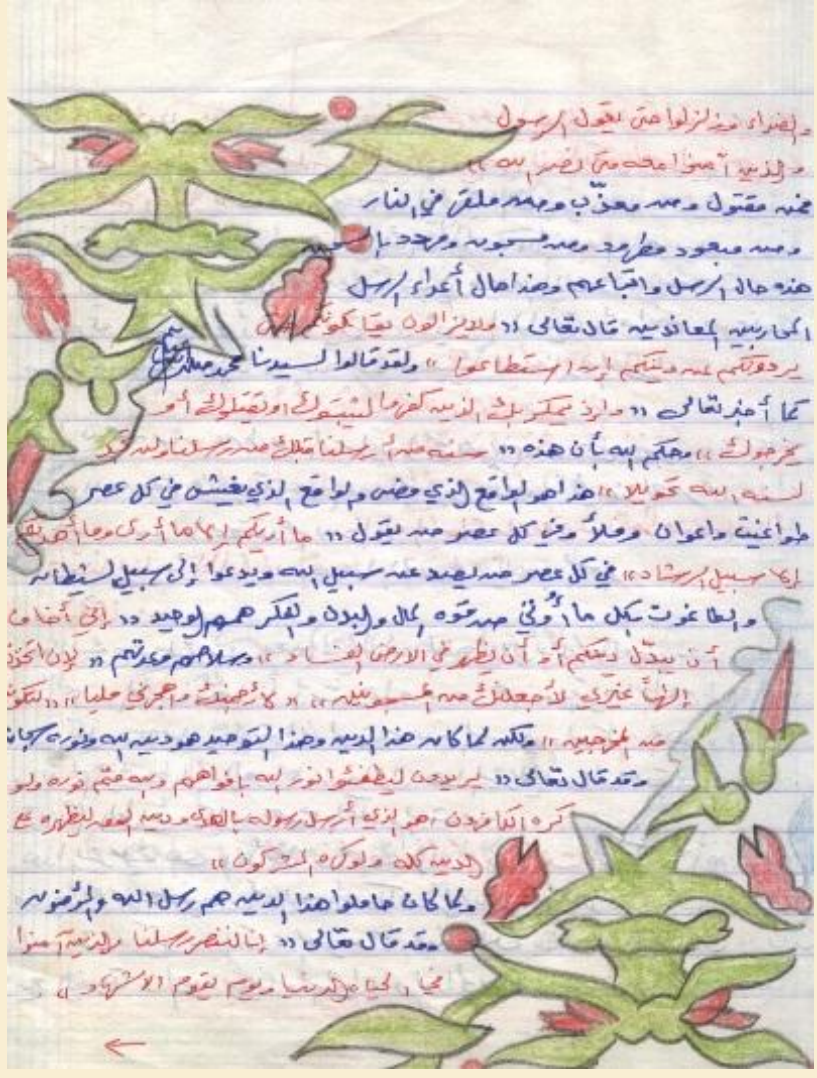 والضراء وزلزلوا حتى يقول الرسول
والذين آمنوا معه متى نصر الله »
فمنه مقتول ومنه معذّب ومنه ملقى في النار
ومنه مبعود مطرود ومنه مسجون ومهدد بالسجن
هذه حال الرسل واتباعهم وهذا حال أعداء الرسل
المحاربين المعاندين قال تعالى « ولايزالون يقاتلونكم حتى
يردوكم عن دينكم إن استطاعوا » ولقد قالوا لسيدنا محمد صلى الله عليه وسلم
كما أخبر تعالى « وإذ يمكر بك الذين كفروا ليثبتوك أو يقتلوك أو
يخرجوك » وحكم الله بأن هذه « سنة من أرسلنا قبلك من رسلنا ولن تجد
لسنة الله تحويلا » هذا هو الواقع الذي مضى والواقع الذي يغيش في كل عصر
طواغيت واعوان وملأ وفي كل عصر من يقول « ما أريكم إلا ما أرى وما أهديكم
إلا سبيل الرشاد » في كل عصر من يصد عن سبيل الله ويدعوا إلى سبيل الشيطان
والطاغوت بكل ما أوتي من قوه المال والبدن والفكر همهم الوحيد « إني أخاف
أن يبدّل دينكم أو أن يظهر في الارض الفساد » وسلاحهم وعدتهم « لإن اتخذت
إلهاً غيري لأجعلنك من المسجونين » « لأرجمنك واهجرني مليا » « لتكونن
من المرجومين » ولكن لما كان هذا الدين وهذا التوحيد هو دين الله ونوره سبحانه
وقد قال تعالى « يريدون ليطفئوا نور الله بافواههم والله متم نوره ولو
كره الكافرون ، هو الذي أرسل رسوله بالهدى ودين الحق ليظهره على
الدين كله ولو كره المشركون »
ولما كان حاملوا هذا الدين هم رسل الله والمؤمنون
وقد قال تعالى « إنا لننصر رسلنا والذين آمنوا
في الحياة الدنيا ويوم يقوم الاشهاد »